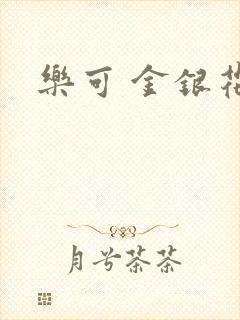 樂可 金銀花
月兮茶茶